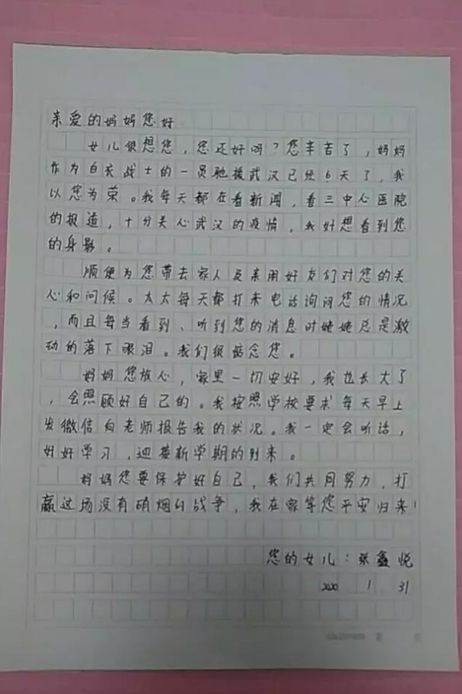 亲爱的妈妈您好
女儿很想您，您还好吗？您辛苦了，妈妈
作为白衣战士的一员驰援武汉已经6天了，我
以您为荣。我每天都在看新闻，看三中心医院
的报道，十分关心武汉的疫情，我好想看到您
的身影。
顺便为您带去家人及亲朋好友们对您的关
心和问候。太太每天都打来电话询问您的情况
，而且每当看到、听到您的消息时姥姥总是激
动的落下眼泪。我们很惦念您。
妈妈您放心，家里一切安好，我也长大了
，会照顾好自己的。我按照学校要求每天早上
发微信向老师报告我的状况。我一定会听话，
好好学习，迎接新学期的到来。
妈妈您要保护好自己，我们共同努力，打
赢这场没有硝烟的战争，我在家等您平安归来！
您的女儿：张鑫悦
2020 1 31